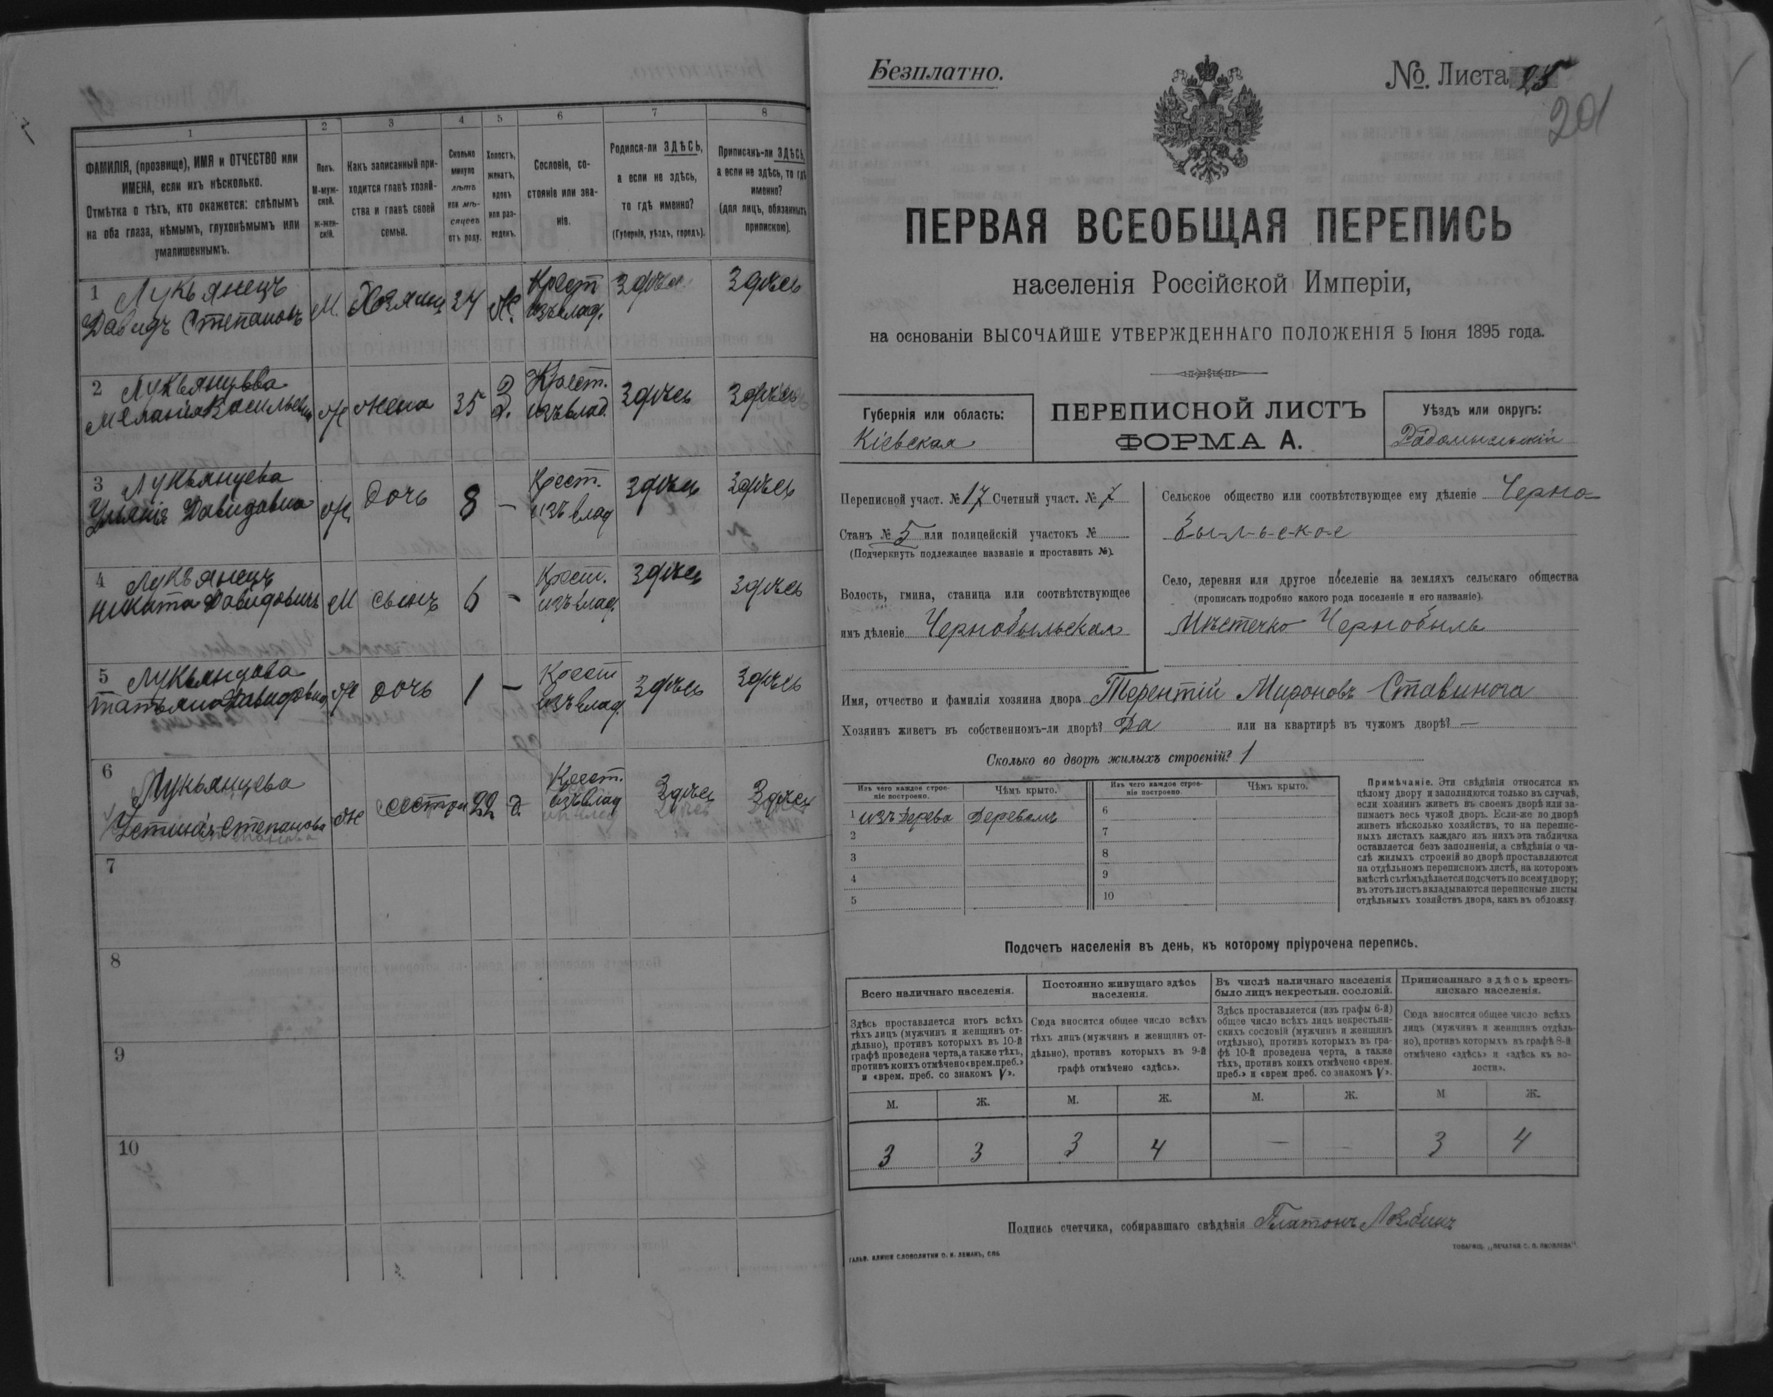 1 2 3 4 5 6 7 8
ФАМИЛІЯ, (прозвище), ИМЯ и ОТЧЕСТВО или
ИМЕНА, если ихъ нѣсколько.
Отмѣтка о тѣхъ, кто окажется: слѣпымъ
на оба глаза, нѣмымъ, глухонѣмымъ или
умалишеннымъ.
Полъ.
М-муж-
ской.
Ж-жен-
скій.
Какъ записанный при-
ходится главѣ хозяй-
ства и главѣ своей
семьи.
Сколько
минуло
лѣтъ
или мѣ-
сяцевъ
отъ роду.
Холостъ,
женатъ,
вдовъ
или раз-
веденъ.
Сословіе, со-
стояніе или зва-
ніе.
Родился-ли ЗДѢСЬ,
а если не здѣсь,
то гдѣ именно?
(Губернія, уѣздъ, городъ).
Приписанъ-ли ЗДѢСЬ,
а если не здѣсь, то гдѣ
именно?
(для лицъ, обязанныхъ
припискою).
1 Лукьянецъ
Давидъ Степановъ М. Хозяинъ 37 Ж. Крест. изъ влад. Здѣсь Здѣсь
2 Лукьянцева
Меланія Васильевна Ж жена 35 З. Крест. изъ влад. Здѣсь Здѣсь
3 Лукьянцева
Ульянія Давидовна Ж дочь 8 – Крест. изъ влад Здѣсь Здѣсь
4 Лукьянецъ
Никита Давидовичъ М сынъ 6 – Крест. изъ влад. Здѣсь Здѣсь
5 Лукьянцова
Татьяна Давидовна Ж дочь 1 – Крест изъ влад. Здѣсь Здѣсь
6 Лукьянцева
Устинія Степанова Ж сестра 22 д Крест. изъ влад Здѣсь Здѣсь
7
8
9
10
Безплатно.
№. Листа 25
201
ПЕРВАЯ ВСЕОБЩАЯ ПЕРЕПИСЬ
населенія Россійской Имперіи,
на основаніи ВЫСОЧАЙШЕ УТВЕРЖДЕННАГО ПОЛОЖЕНІЯ 5 Іюня 1895 года.
Губернія или область:
Кіевская
ПЕРЕПИСНОЙ ЛИСТЪ
ФОРМА А.
Уѣздъ или округъ:
Радомысльскій
Переписной участ. № 17 Счетный участ. № 7
Станъ № 5 или полицейскій участокъ №
(Подчеркнуть подлежащее названіе и проставить №).
Волость, гмина, станица или соотвѣтствующее
имъ дѣленіе Чернобыльская
Сельское общество или соотвѣтствующее ему дѣленіе Черно-
быльское
Село, деревня или другое поселеніе на земляхъ сельскаго общества
(прописать подробно какого рода поселеніе и его названіе).
Мѣстечко Чернобыль
Имя, отчество и фамилія хозяина двора Терентій Мироновъ Ставинога
Хозяинъ живетъ въ собственномъ-ли дворѣ? Да или на квартирѣ въ чужомъ дворѣ? —
Сколько во дворѣ жилыхъ строеній? 1
Изъ чего каждое строе-
ніе построено.
Чѣмъ крыто.
Изъ чего каждое строе-
ніе построено.
Чѣмъ крыто.
1 изъ дерева Деревомъ 6
2 7
3 8
4 9
5 10
Примѣчаніе. Эти свѣдѣнія относятся къ
цѣлому двору и заполняются только въ случаѣ,
если хозяинъ живетъ въ своемъ дворѣ или за-
нимаетъ весь чужой дворъ. Если-же во дворѣ
живетъ нѣсколько хозяйствъ, то на перепис-
ныхъ листахъ каждаго изъ нихъ эта табличка
оставляется безъ заполненія, а свѣдѣнія о чи-
слѣ жилыхъ строеній во дворѣ проставляются
на отдѣльномъ переписномъ листѣ, на которомъ
вмѣстѣ съ тѣмъ дѣлается подсчетъ по всему двору;
въ этотъ листъ вкладываются переписные листы
отдѣльныхъ хозяйствъ двора, какъ въ обложку.
Подсчетъ населенія въ день, къ которому пріурочена перепись.
Всего наличнаго населенія.
Здѣсь проставляется итогъ всѣхъ
тѣхъ лицъ (мужчинъ и женщинъ от-
дѣльно), противъ которыхъ въ 10-й
графѣ проведена черта, а также тѣхъ,
противъ коихъ отмѣчено «врем. преб.»
и «врем. преб. со знакомъ V».
Постоянно живущаго здѣсь
населенія.
Сюда вносится общее число всѣхъ
тѣхъ лицъ (мужчинъ и женщинъ от-
дѣльно), противъ которыхъ въ 9-й
графѣ отмѣчено «здѣсь».
Въ числѣ наличнаго населенія
было лицъ некрестьян. сословій.
Здѣсь проставляется (изъ графы 6-й)
общее число всѣхъ лицъ некрестьян-
скихъ сословій (мужчинъ и женщинъ
отдѣльно), противъ которыхъ въ гра-
фѣ 10-й проведена черта, а также
тѣхъ, противъ коихъ отмѣчено «врем.
преб.» и «врем преб. со знакомъ V».
Приписаннаго здѣсь кресть-
янскаго населенія.
Сюда вносится общее число всѣхъ
лицъ (мужчинъ и женщинъ отдѣль-
но), противъ которыхъ въ графѣ 8-й
отмѣчено «здѣсь» и «здѣсь къ во-
лости».
М. Ж. М. Ж. М. Ж. М Ж.
3 3 3 4 — — 3 4
Подпись счетчика, собиравшаго свѣдѣнія Платонъ
ГАЛЬВ. КЛИШЕ СЛОВОЛИТНИ О. И. ЛЕМАНЪ, СПБ.
ТОВАРИЩ. „ПЕЧАТНИ С. П. ЯКОВЛЕВА“.